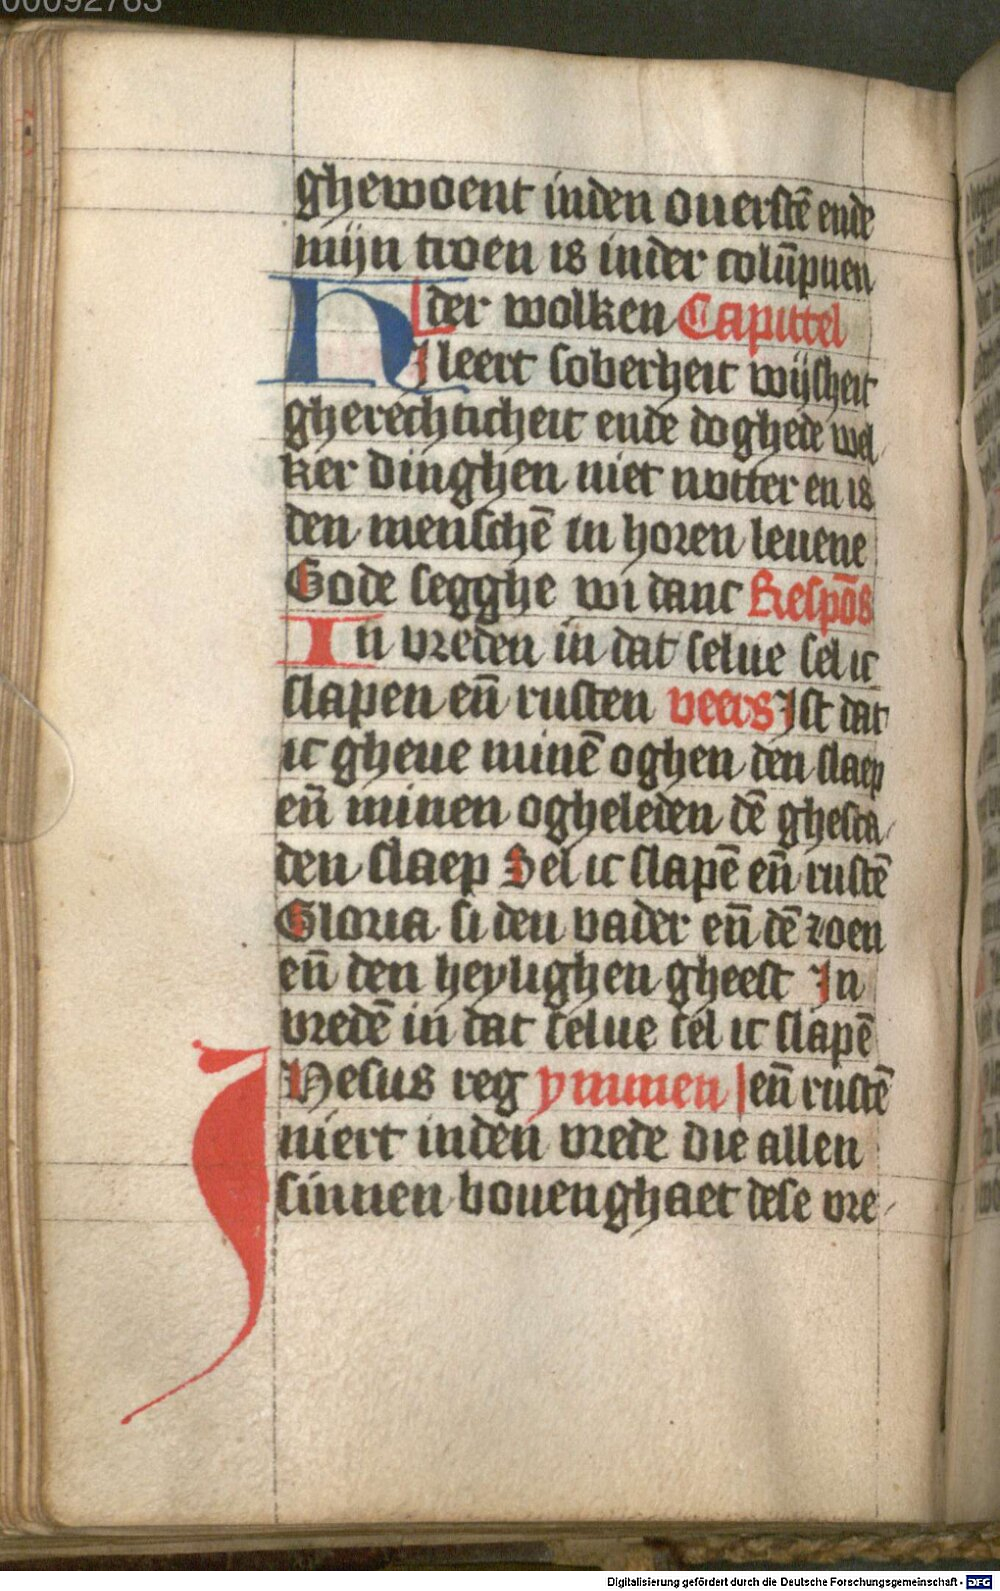 00092763
ghewoent inden ouerstē ende
mijn troen is inder colūpnen
der wolken Capittel
HI leert soberheit wijsheit
gherechticheit ende doghede wel
ker dinghen niet notter en is
den menschē in horen leuene
Gode segghe wi danc Respōs
In vreden in dat selue sel ic
slapen eñ rusten veers Ist dat
ic gheue minē oghen den slaep
eñ minen ogheleden dē ghesta
den slaep Sel ic slapē eñ rustē
Gloria si den vader eñ dē zoen
eñ den heylighen gheest In
vredē in dat selue sel ic slapē
Jhesus reg ymmen eñ rustē
niert inden vrede die allen
sinnen bouenghaet dese vre
Digitalisierung gefördert durch die Deutsche Forschungsgemeinschaft - DFG